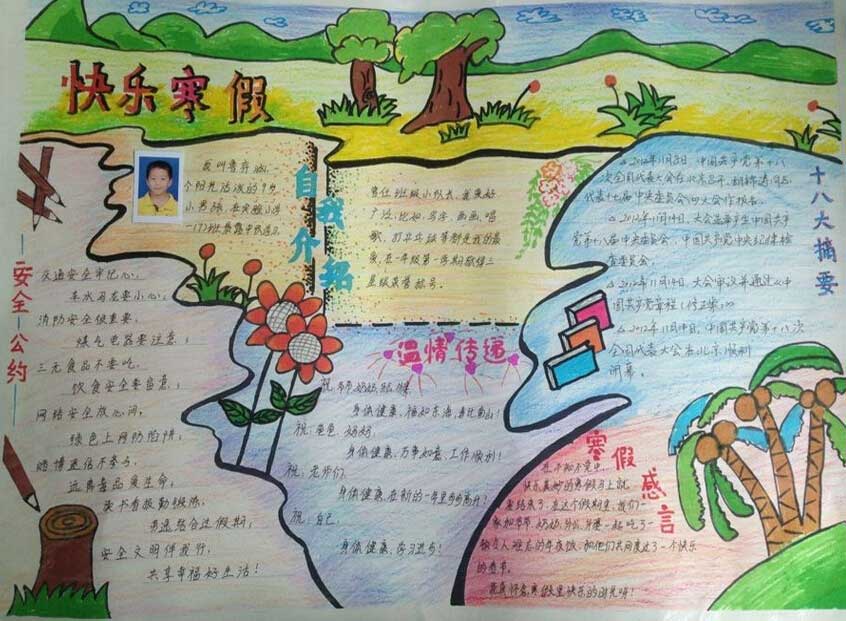 快乐寒假
自我介绍
个阳光活泼的9岁
小男孩，在实验小学
曾任班级小队长，我爱好
广泛，比如：写字、画画、唱
歌、打乒乓球等都是我的最
爱，在一年级第一学期获得三
星级荣誉称号。
十八大摘要
△2012年11月8日，中国共产党第十八
次全国代表大会在北京召开，胡锦涛同志
代表十七届中央委员会向大会作报告。
△2012年11月14日，大会选举产生中国共产
党第十八届中央委员会、中国共产党中央纪律检
查委员会。
△2012年11月14日，大会审议并通过《中
国共产党章程（修正案）》
△2012年11月14日，中国共产党第十八次
全国代表大会在北京顺利
闭幕。
安全公约
交通安全牢记心；
玩水马虎要小心；
消防安全很重要，
煤气电器要注意；
三无食品不要吃，
饮食安全要留意；
网络安全放心间，
绿色上网防陷阱；
赌博迷信不参与，
远离毒品爱生命；
读书看报勤锻炼，
劳逸结合过假期；
安全文明伴我行，
共享幸福好生活！
温情传递
祝：爷爷、奶奶、
身体健康，福如东海，寿比南山！
祝：爸爸、妈妈，
身体健康，万事如意，工作顺利！
祝：老师们，
身体健康，在新的一年里步步高升！
祝：自己，
身体健康，学习进步！
寒假感言
在不知不觉中，
快乐美妙的寒假马上就
要结束了，在这个假期里，我们一
家和爷爷、奶奶、外公、外婆一起吃了一
顿令人难忘的年夜饭，和他们共同度过了一个快乐
的春节。
我真怀念寒假里快乐的时光呀！